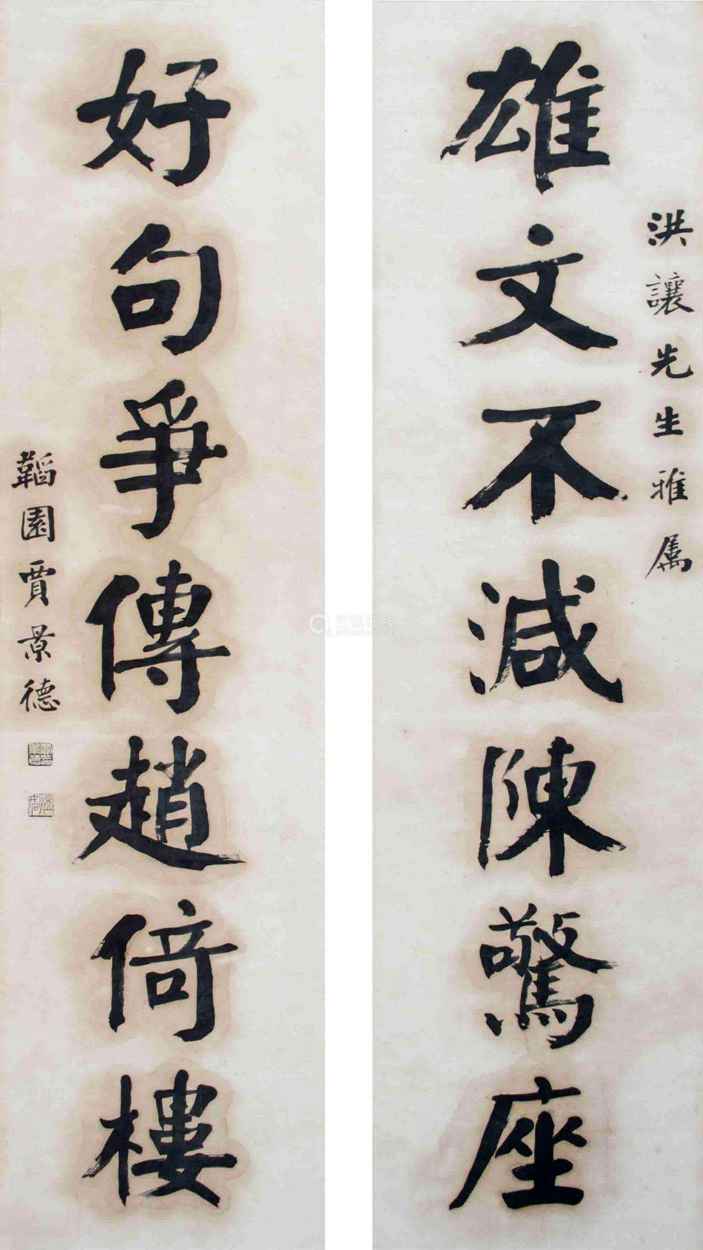 洪讓先生雅属
雄文不減陳驚座
好句爭傳趙倚樓
韜園賈景德